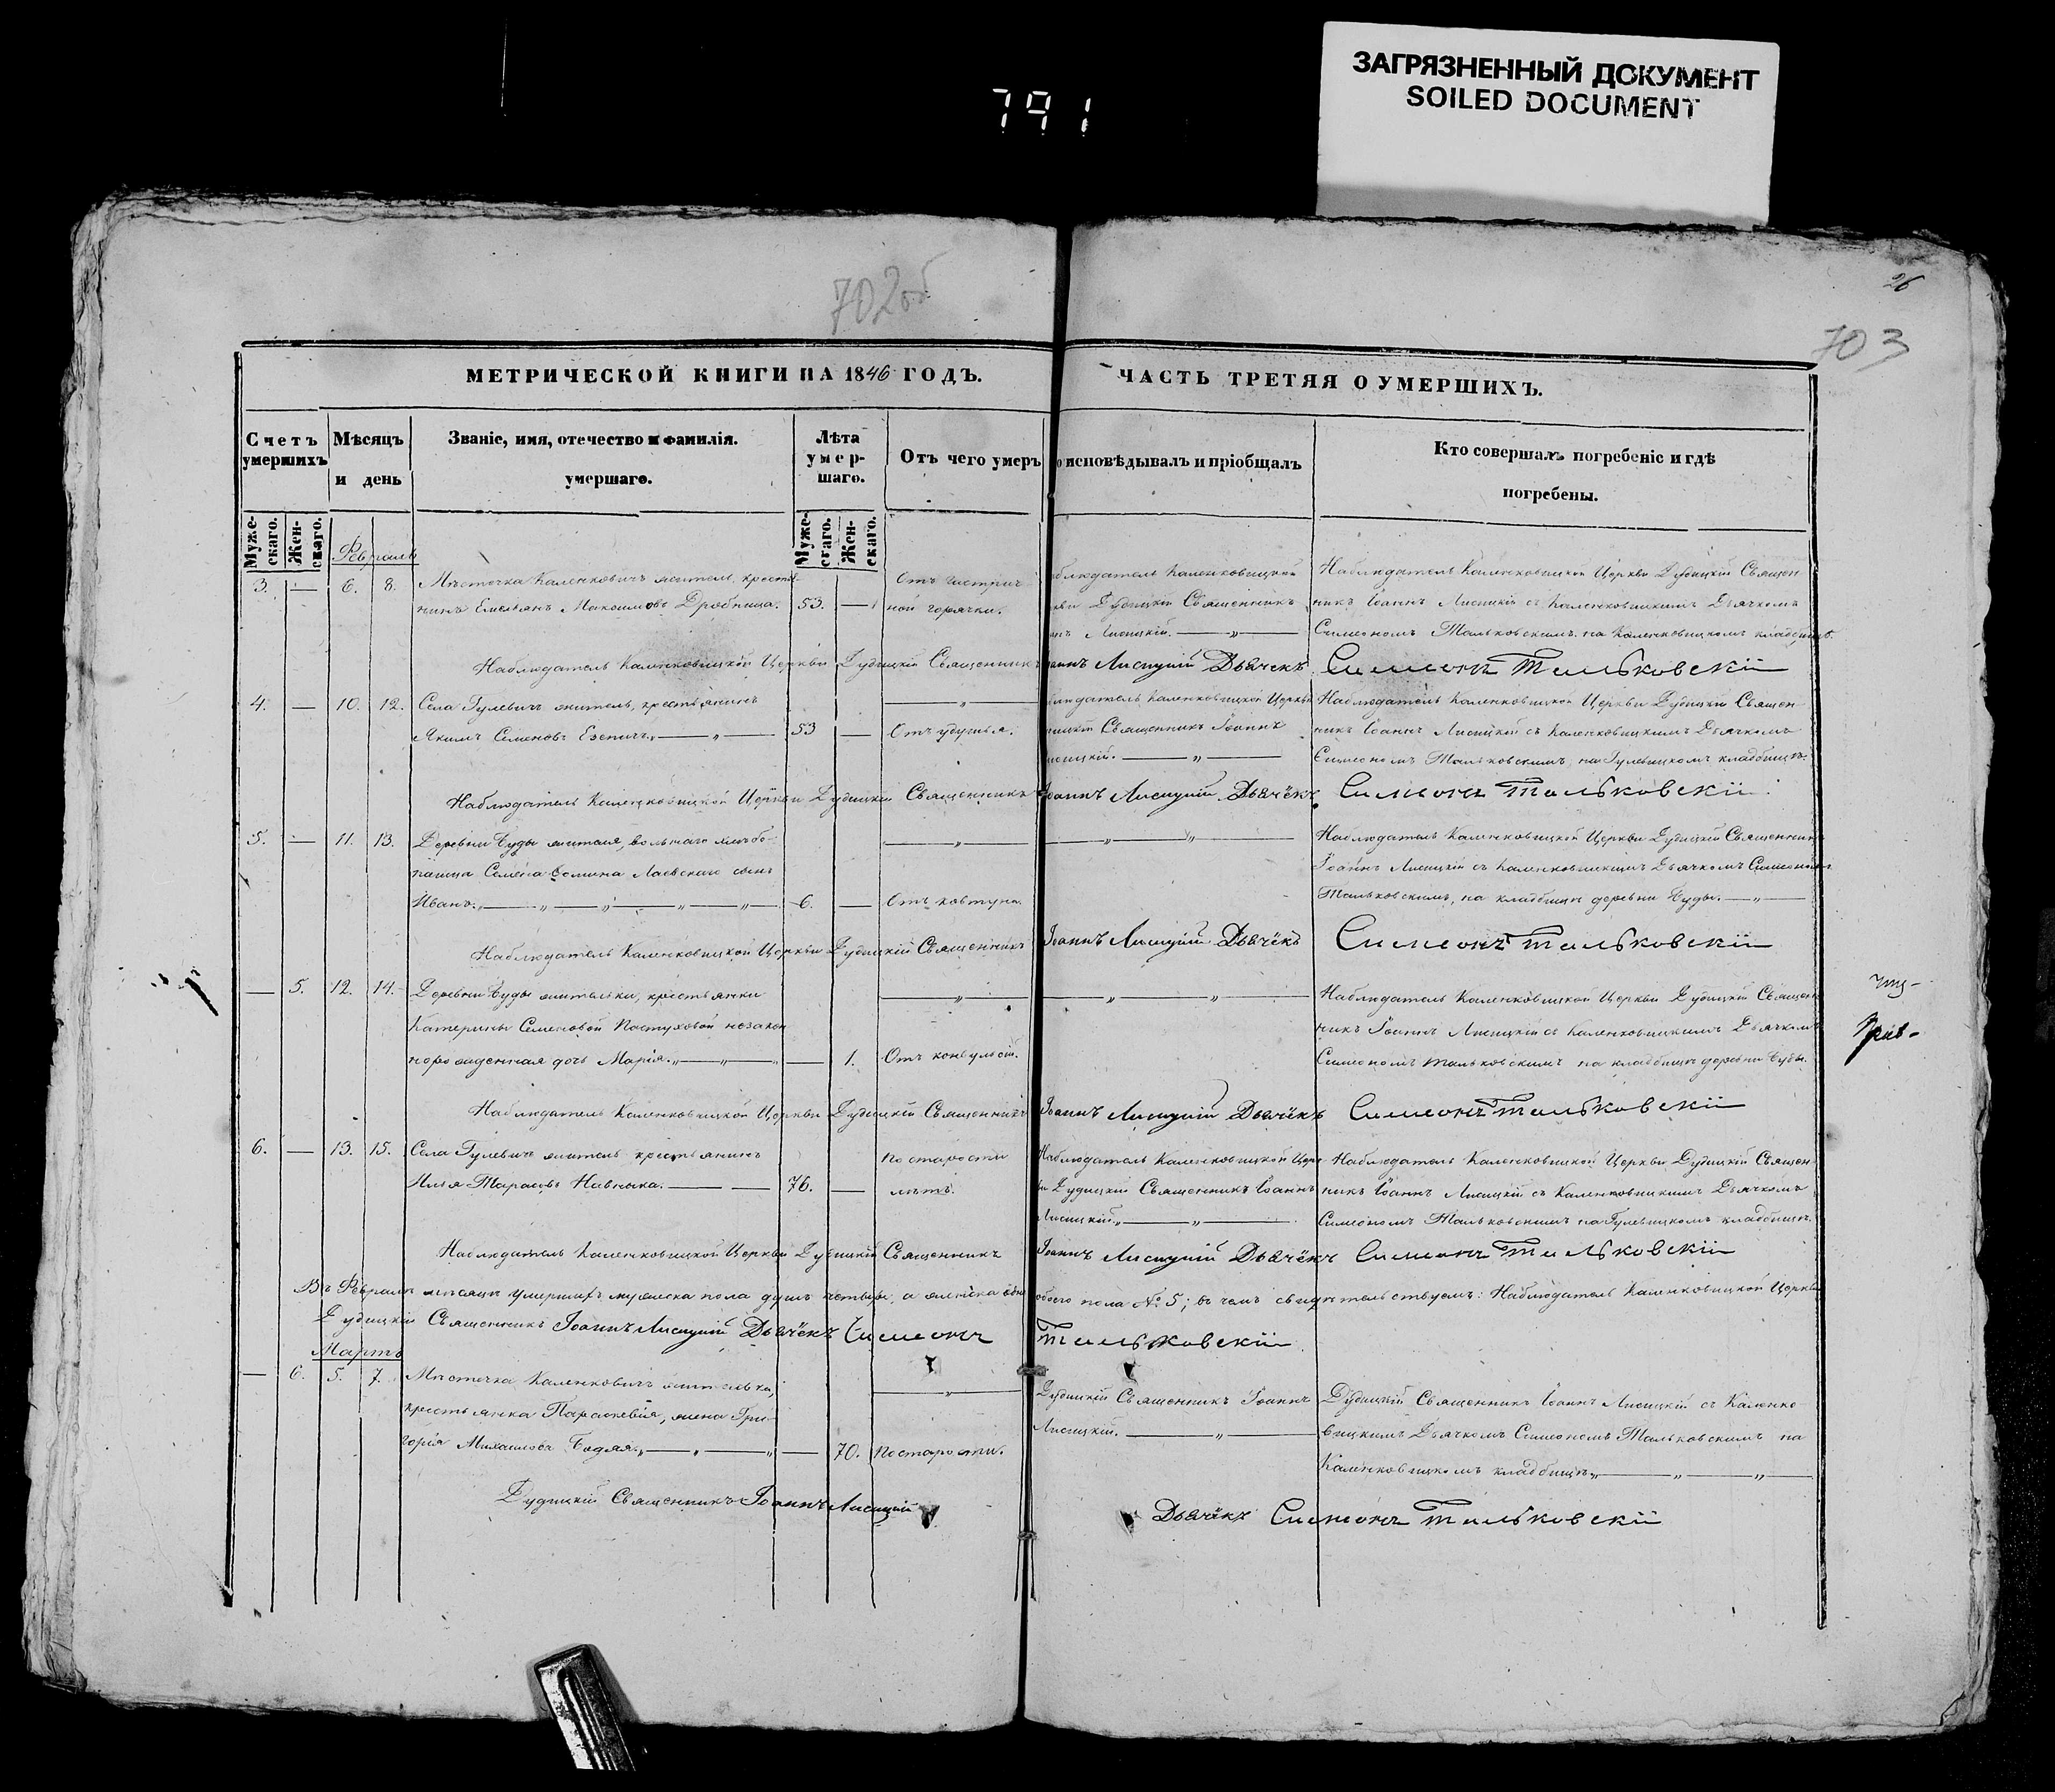 791
ЗАГРЯЗНЕННЫЙ ДОКУМЕНТ
SOILED DOCUMENT
702об
26
703
МЕТРИЧЕСКОЙ КНИГИ НА 1846 ГОДЪ.
ЧАСТЬ ТРЕТЯЯ О УМЕРШИХЪ.
Счетъ умершихъ
Мѣсяцъ и день
Званіе, имя, отечество и фамилія.
умершаго.
Лѣта умер-шаго.
Отъ чего умеръ
исповѣдывалъ и пріобщалъ
Кто совершалъ погребеніе и гдѣ
погребены.
Муже-скаго.
Жен-скаго.
Муже-скаго.
Жен-скаго.
Февраль
3. — 6. 8. Мѣстечка Каленковичъ житель, крестья-
нинъ Емельянъ Максимовъ Дробница. 53. —
Отъ гастрич-
ной горячки.
блюдатель Каленковицкой
кви Дудицкій Священникъ
анъ Лисицкій. — „ —
Наблюдатель Каленковицкой Церкви Дудицкій Священ-
никъ Іоаннъ Лисицкій съ Каленковицкимъ Дьячкомъ
Симеономъ Тальковскимъ на Каленковицкомъ кладбищѣ.
Наблюдатель Каленковицкой Церкви Дудицкій Священникъ Іоаннъ Лисицкій Дьячекъ Симеонъ Тальковскій
4. — 10. 12. Села Гулевичъ житель, крестьянинъ
Якимъ Семеновъ Езепичъ. „ — „ — 53 —
— „ —
Отъ удушья.
людатель Каленковицкой Церкви
ицкій Священникъ Іоаннъ
исицкій. — „ —
Наблюдатель Каленковицкой Церкви Дудицкій Священ-
никъ Іоаннъ Лисицкій съ Каленковицкимъ Дьячкомъ
Симеономъ Тальковскимъ, на Гулевицкомъ кладбищѣ.
Наблюдатель Каленковицкой Церкви Дудицкій Священникъ Іоаннъ Лисицкій Дьячёкъ Симеонъ Тальковскій
5. — 11. 13. Деревни Буды жителя, вольнаго хлѣбо-
пашца Семена Фомина Лаевскаго сынъ
Иванъ. „ — „ — „ — „ — „ — 6. —
— „ —
Отъ ковтуна.
— „ — „ —
Наблюдатель Каленковицкой Церкви Дудицкій Священникъ
Іоаннъ Лисицкій съ Каленковицкимъ Дьячкомъ Симеономъ
Тальковскимъ, на кладбищѣ деревни Буды. — „ —
Наблюдатель Каленковицкой Церкви Дудицкій Священникъ Іоаннъ Лисицкій Дьячёкъ Симеонъ Тальковскій
— 5. 12. 14. Деревни Буды жительки, крестьянки
Катерины Семеновой Пастуховой незакон
норожденная дочь Марія. „ — „ — „ — 1.
— „ —
Отъ конвульсій.
— „ — „ —
Наблюдатель Каленковицкой Церкви Дудицкій Священ
никъ Іоаннъ Лисицкій съ Каленковицкимъ Дьячкомъ
Симеономъ Тальковскимъ на кладбищѣ деревни Буды.
Наблюдатель Каленковицкой Церкви Дудицкій Священникъ Іоаннъ Лисицкій Дьячёкъ Симеонъ Тальковскій
6. — 13. 15. Села Гулевичъ житель крестьянинъ
Илья Тарасовъ Навныка. — — 76. —
По старости
лѣтъ.
Наблюдатель Каленковицкой Церк
ви Дудицкій Священникъ Іоаннъ
Лисицкій. „ — „ —
Наблюдатель Каленковицкой Церкви Дудицкій Священ-
никъ Іоаннъ Лисицкій съ Каленковицкимъ Дьячкомъ
Симеономъ Тальковскимъ на Гулевицкомъ кладбищѣ.
Наблюдатель Каленковицкой Церкви Дудицкій Священникъ Іоаннъ Лисицкій Дьячёкъ Симеонъ Тальковскій
Въ Февралѣ мѣсяцѣ умершихъ мужеска пола душъ четыре, а женска одна обоего пола № 5; въ чемъ свидѣтельствуемъ: Наблюдатель Каленковицкой Церкви
Дудицкій Священникъ Іоаннъ Лисицкій Дьячёкъ Симеонъ Тальковскій
Мартъ
— 6. 5. 7. Мѣстечка Каленковичъ жителька,
крестьянка Параскевія, жена Гри-
горія Михаилова Бодяя. „ — „ — „ — 70.
— „ —
По старости.
Дудицкій Священникъ Іоаннъ
Лисицкій. — „ —
Дудицкій Священникъ Іоаннъ Лисицкій съ Каленко
вицкимъ Дьячкомъ Симеономъ Тальковскимъ на
Каленковицкомъ кладбищѣ. „ — „ — „ —
Дудицкій Священникъ Іоаннъ Лисицкій Дьячёкъ Симеонъ Тальковскій